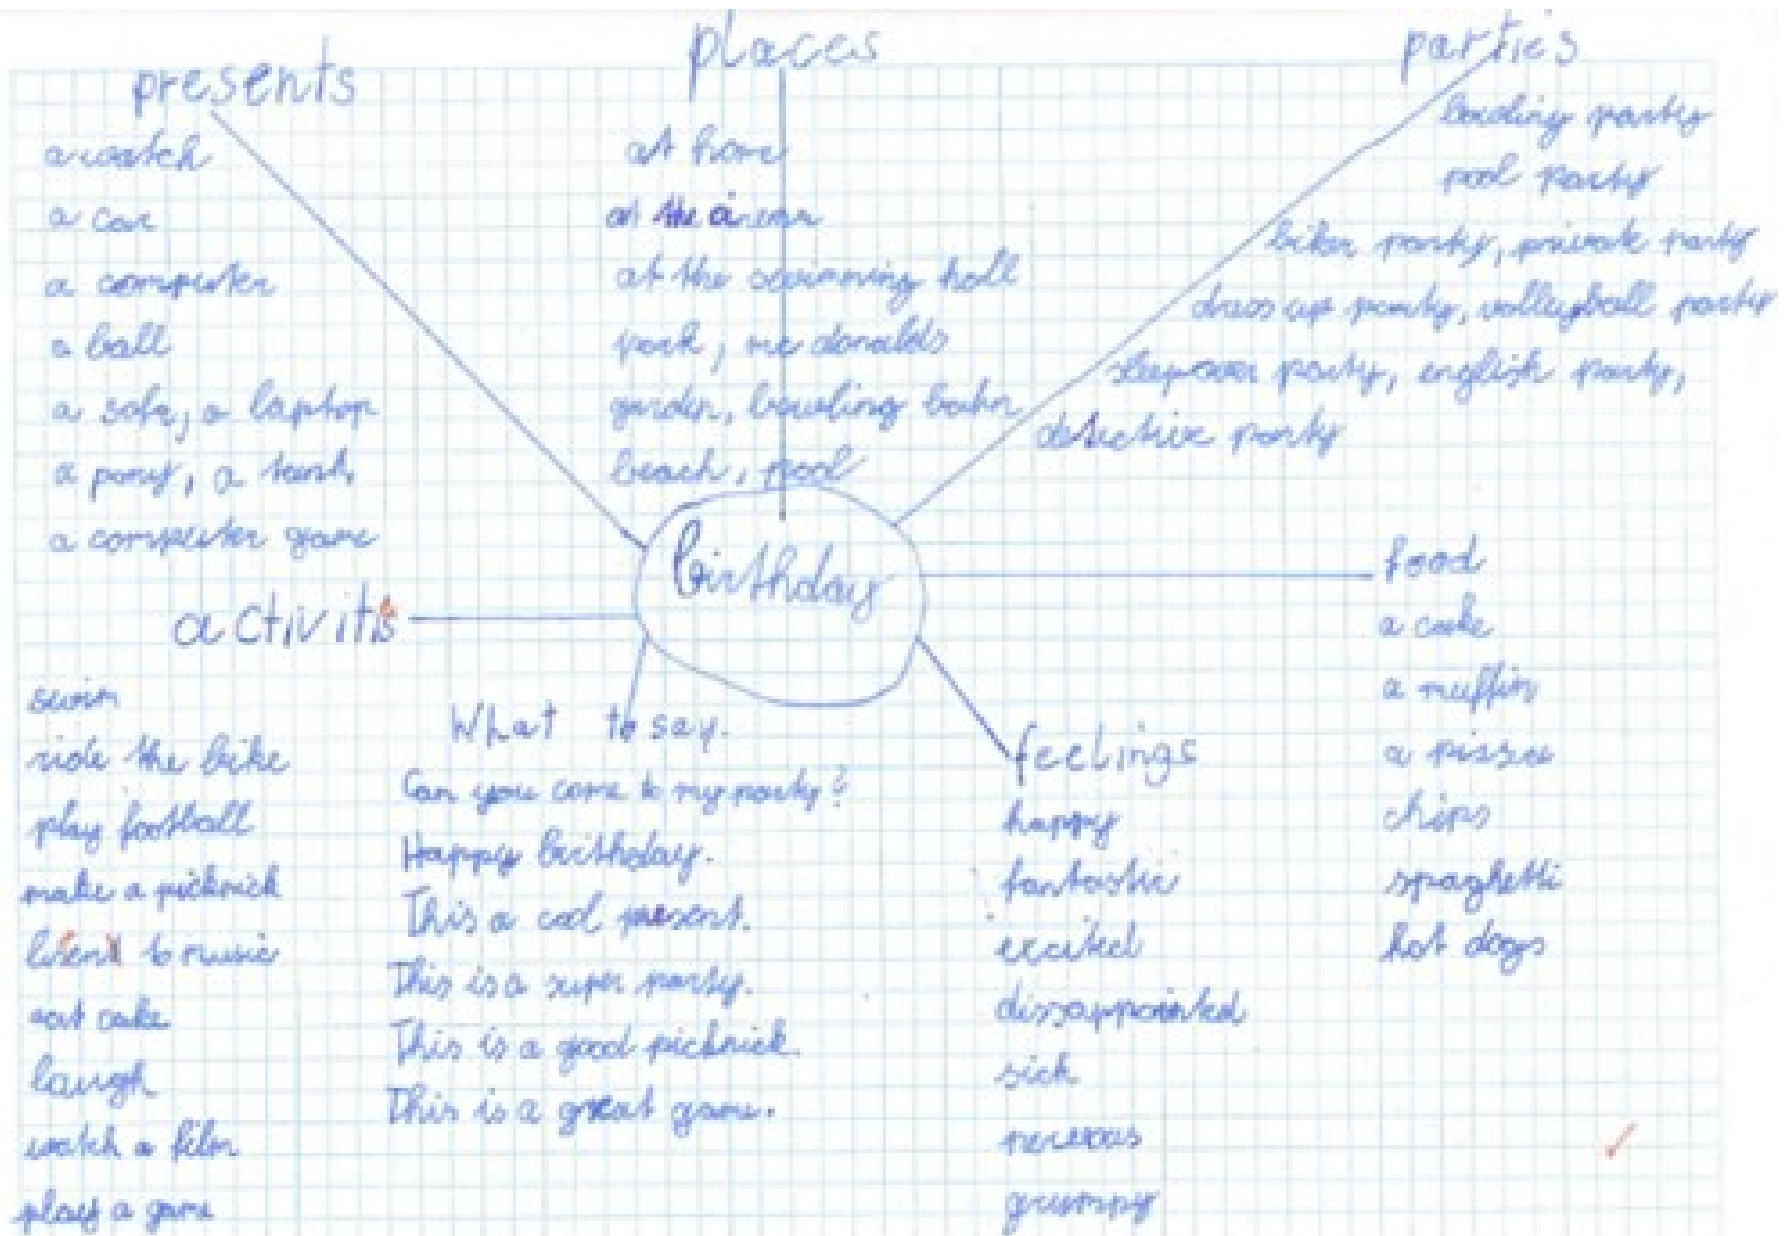 presents
a watch
a car
a computer
a ball
a safe, a laptop
a pony, a tent,
a computer game
places
at home
at the arena
at the swimming hall
park, mc donalds
garden, bowling bahn
beach, pool
parties
pool party
biker party, private party
dress up party, volleyball party
sleepover party, english party,
detective party
birthday
activites
swim
ride the bike
play football
make a picknick
listen to music
eat cake
laugh
watch a film
play a game
What to say.
Can you come to my party?
Happy birthday.
This a cool present.
This is a super party.
This is a good picknick.
This is a great game.
feelings
happy
fantastic
excited
dissappointed
sick
nervous
grumpy
food
a cake
a muffin
a pizza
chips
spaghetti
hot dogs